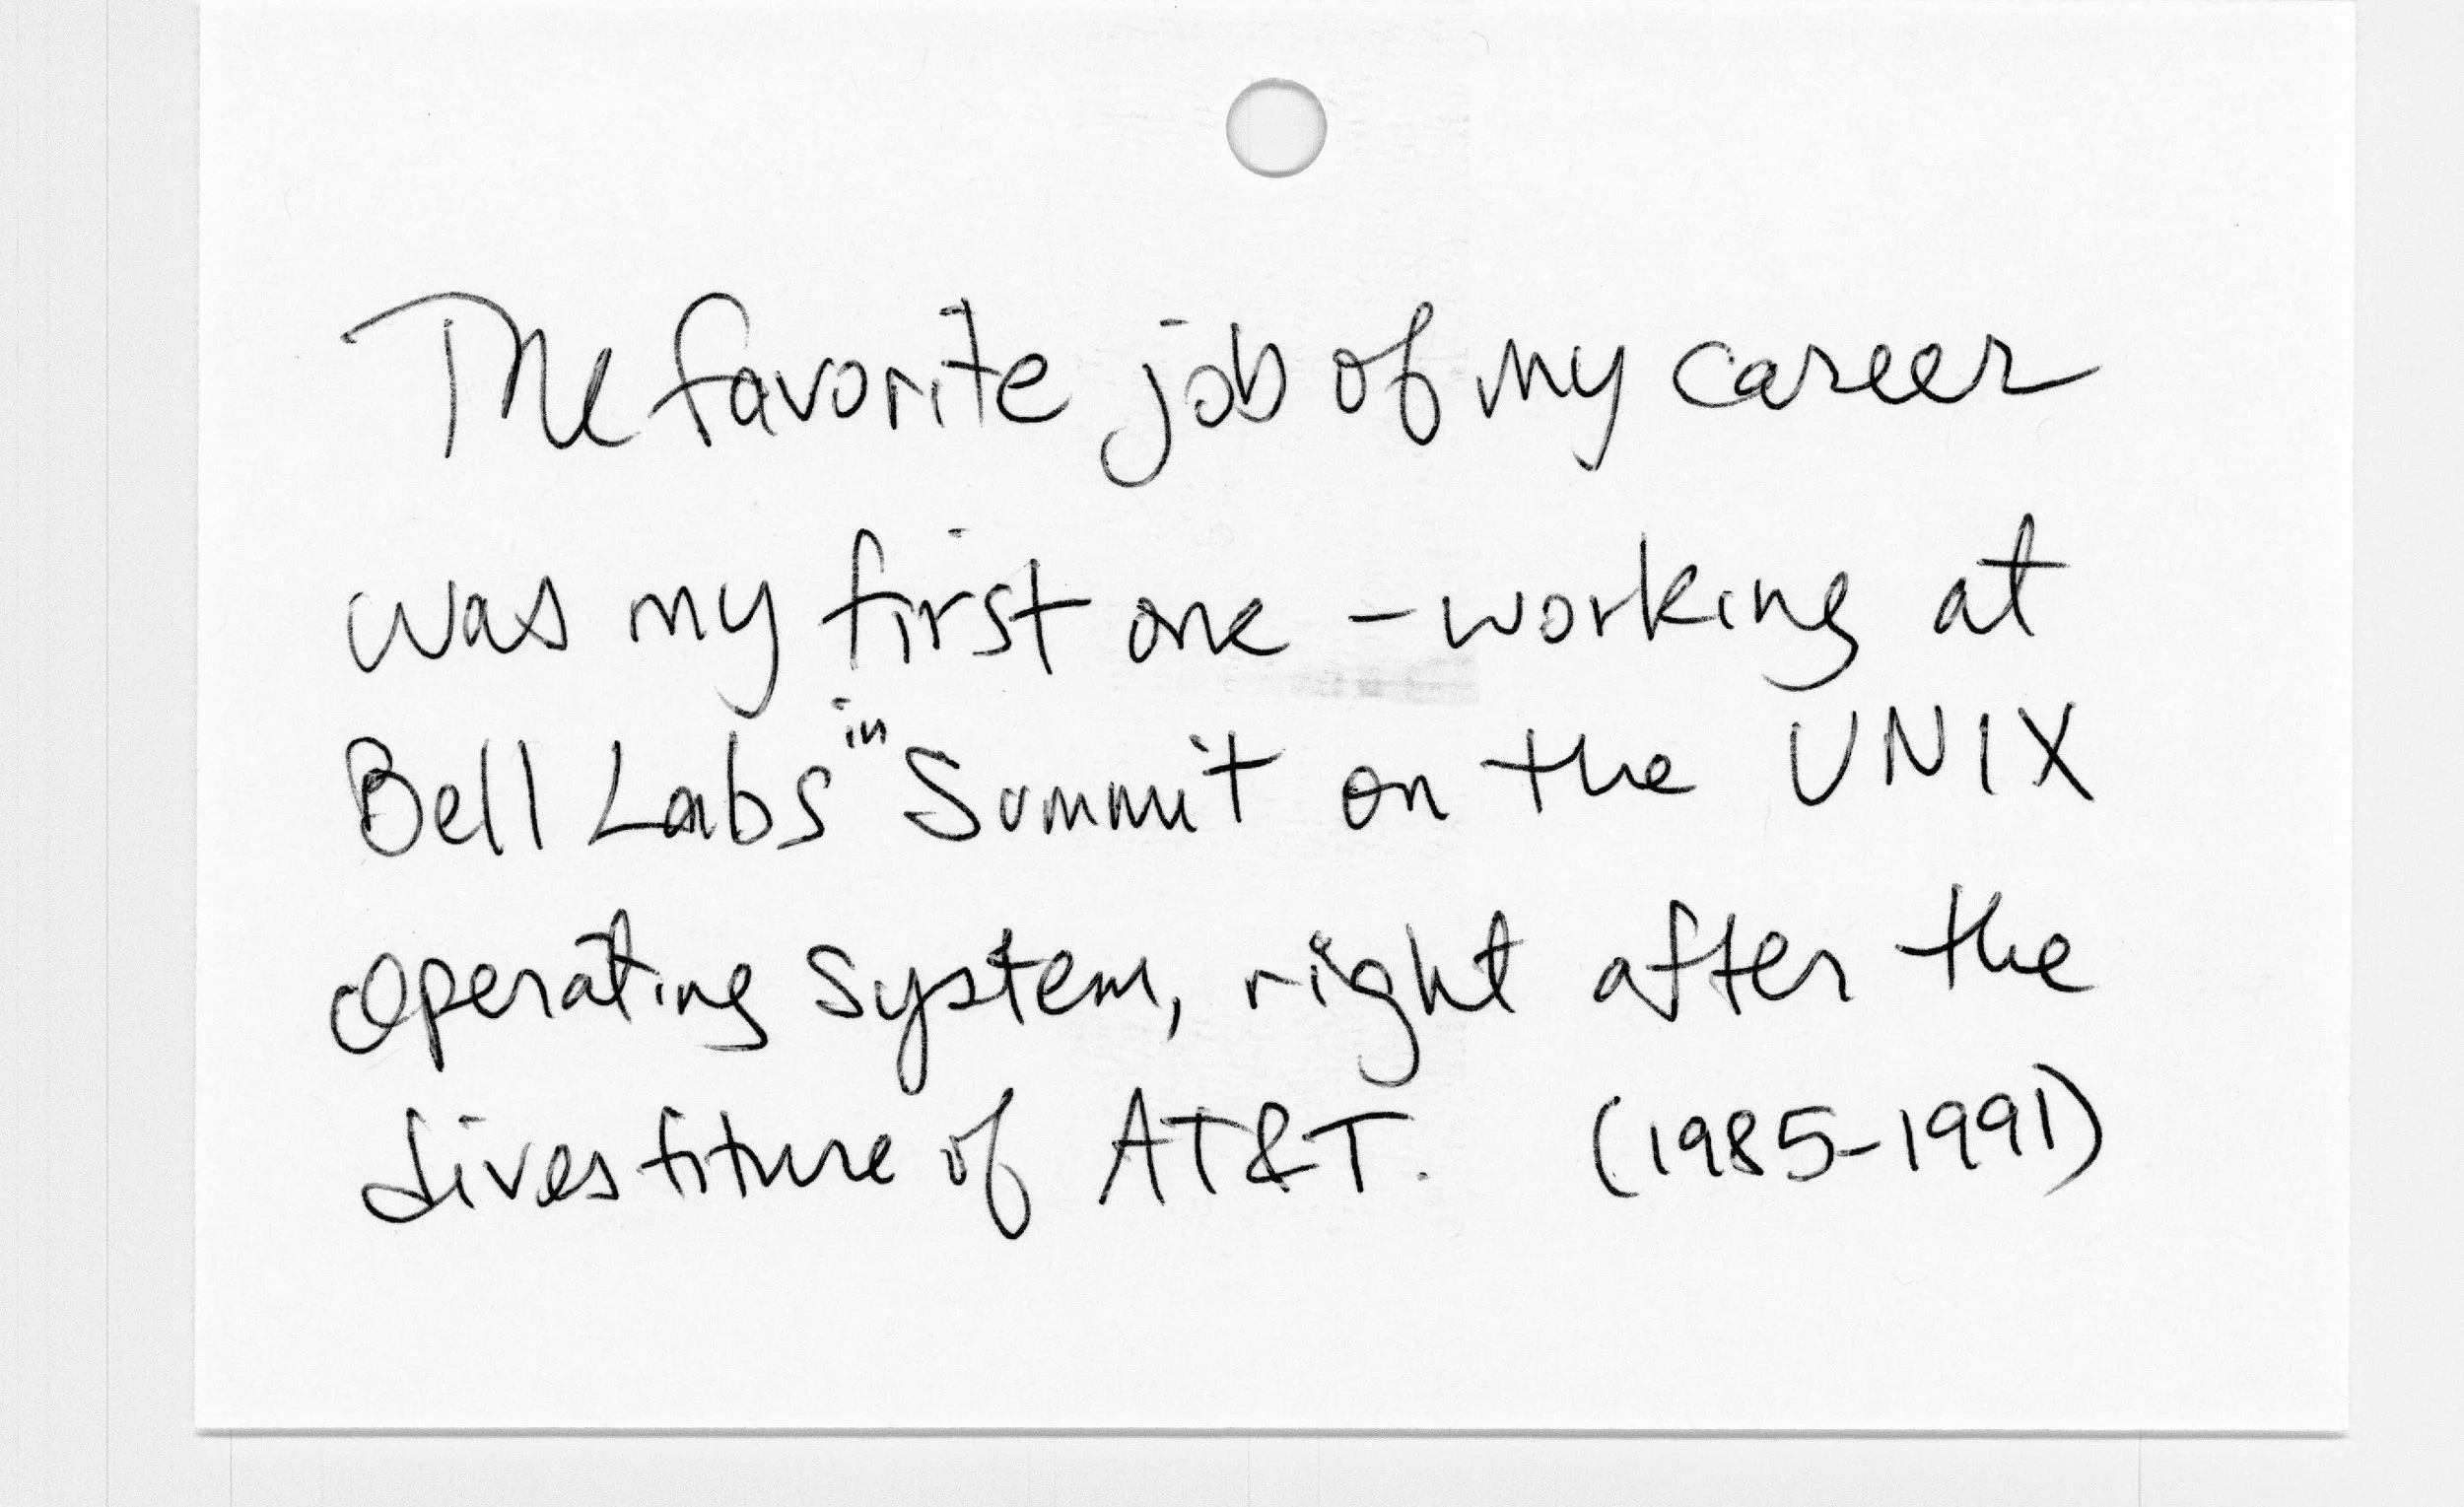 The favorite job of my career
was my first one - working at
Bell Labs in Summit on the UNIX
operating system, right after the
divestiture of AT&T. (1985-1991)